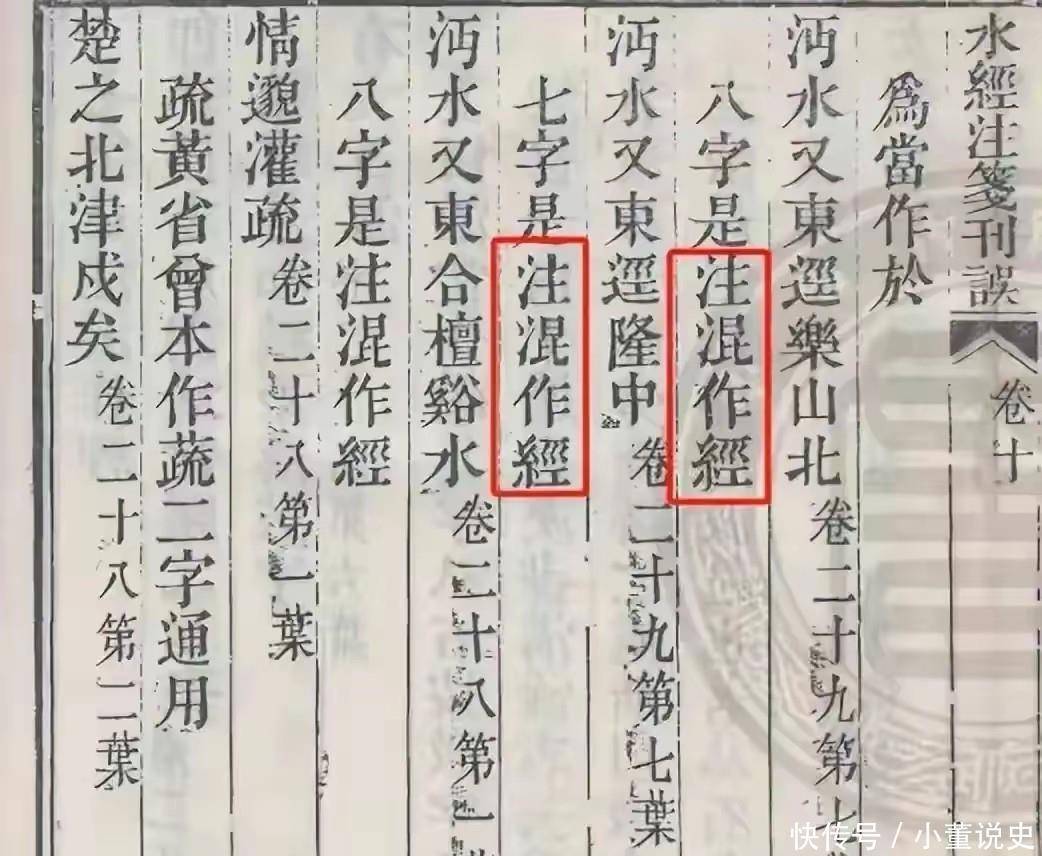 水經注箋刊誤 卷十
爲當作於
沔水又東逕樂山北 卷二十九第七
八字是注混作經
沔水又東逕隆中 卷二十九第七葉
七字是注混作經
沔水又東合檀谿水 卷二十八第一
八字是注混作經
情邈灌疏 卷二十八第一葉
疏黃省曾本作蔬二字通用
楚之北津戍矣 卷二十八第二葉
快传号/小董说史